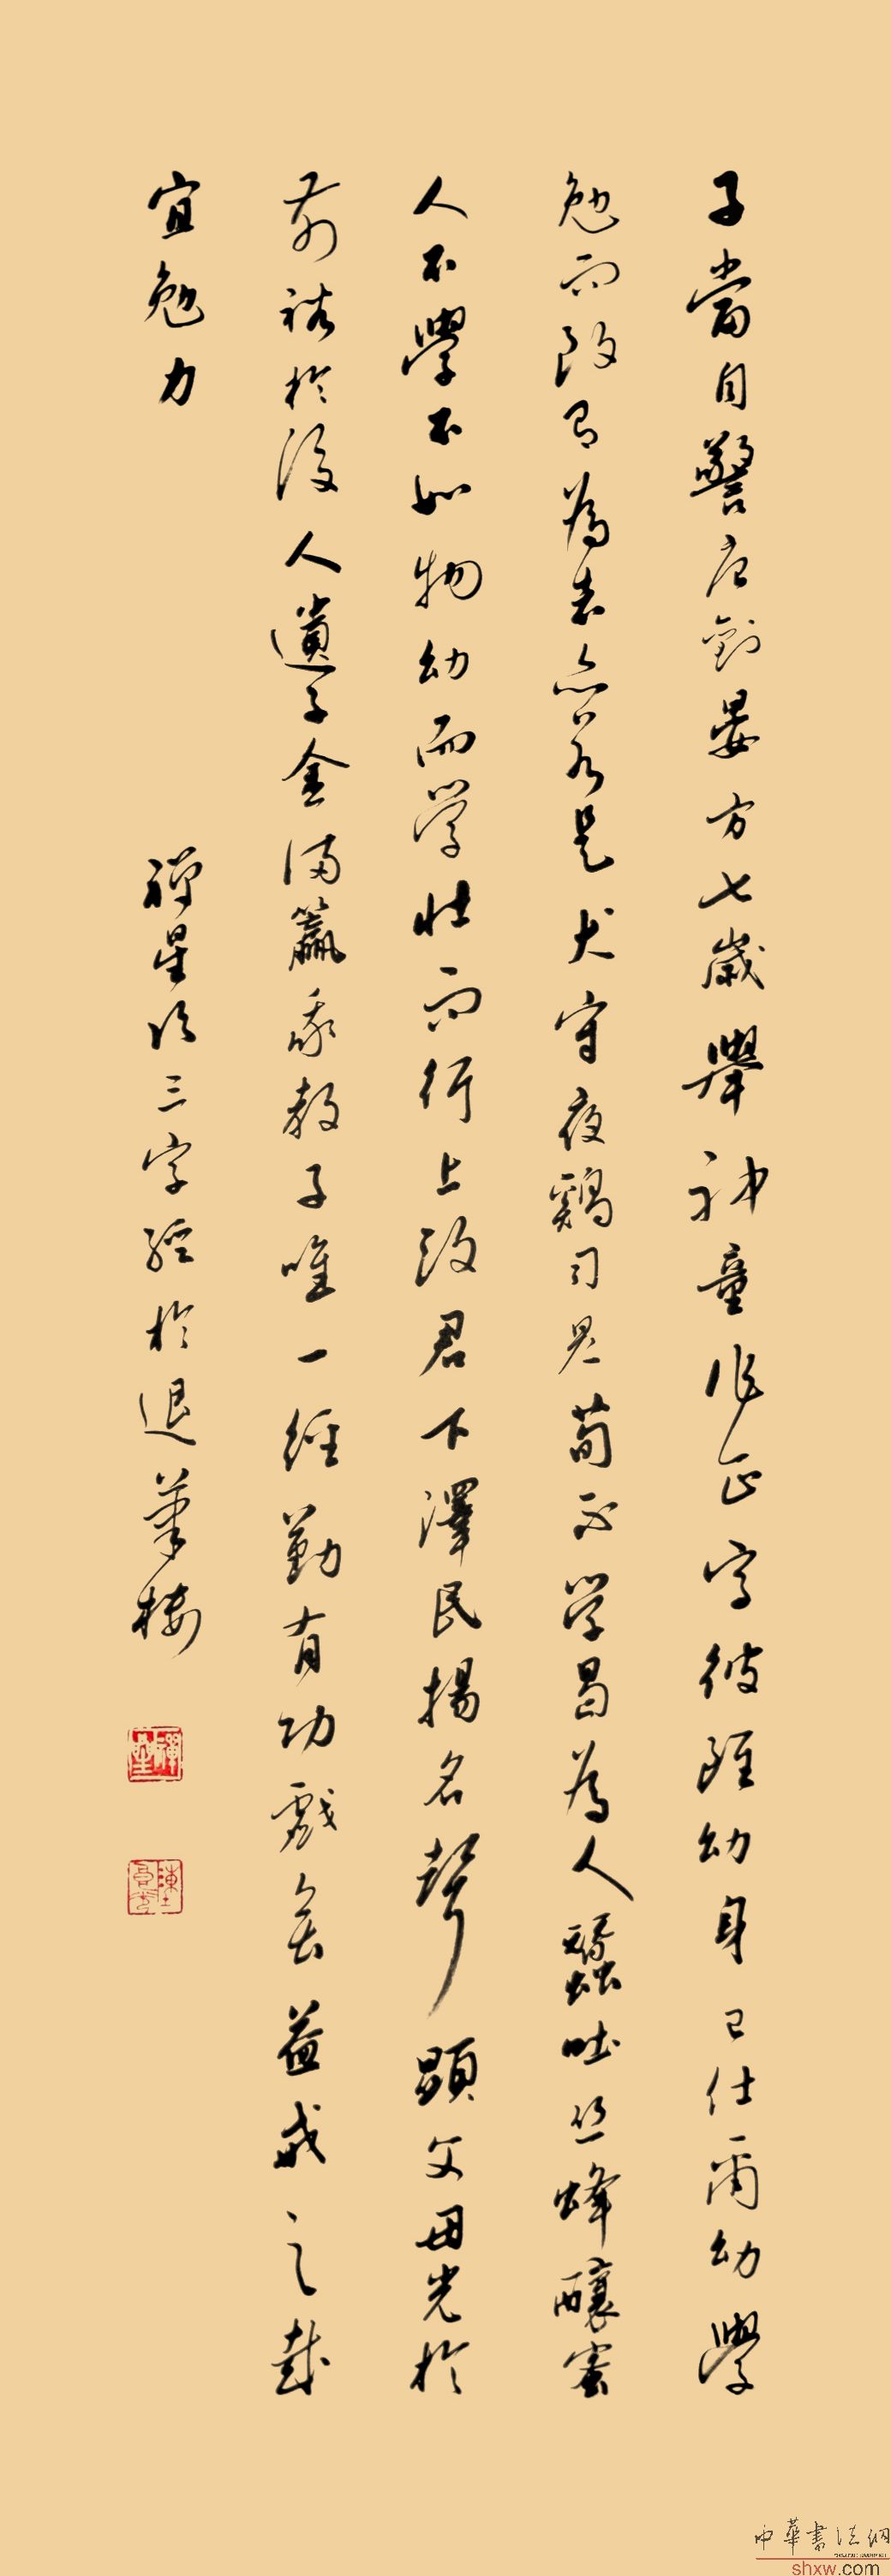 子當自警唐劉晏方七歲舉神童作正字彼雖幼身已仕爾幼學
勉而致有為者亦若是犬守夜鷄司晨苟不學曷為人蠶吐絲蜂釀蜜
人不學不如物幼而學壯而行上致君下澤民揚名聲顯父母光於
前裕於後人遺子金滿籯我教子唯一經勤有功戲無益戒之哉
宜勉力
禪星 三字經於退筆樓
禪星
中華書法網
shxw.com